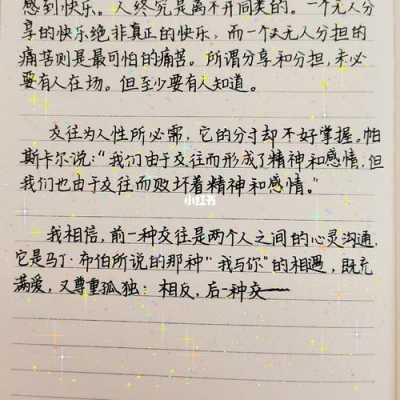 感到快乐。人终究是离不开同类的。一个无人分
享的快乐绝非真正的快乐，而一个无人分担的
痛苦则是最可怕的痛苦。所谓分享和分担，未必
要有人在场。但至少要有人知道。
交往为人性所必需，它的分寸却不好掌握。帕
斯卡尔说：“我们由于交往而形成了精神和感情，但
我们也由于交往而败坏着精神和感情。”
小红书
我相信，前一种交往是两个人之间的心灵沟通，
它是马丁·布伯所说的那种“我与你”的相遇，既充
满爱，又尊重孤独：相反，后一种交——